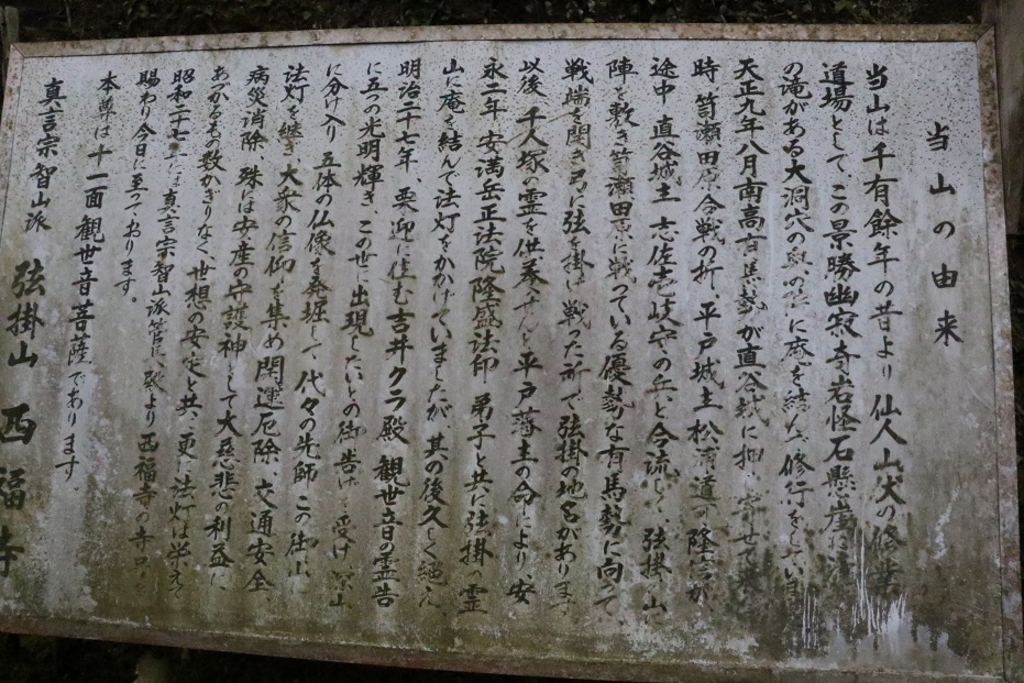 当山の由来
当山は千有餘年の昔より仙人山伏の修業
道場として、この景勝幽寂奇岩怪石懸崖に
の滝がある大洞穴の奥の に庵を結び、修行をしてい
天正九年八月南高有馬勢が直谷城に押し寄せて来
時、筒瀬田原合戦の折、平戸城主松浦道可隆信が
途中 直谷城主 志佐壱岐守の兵と合流し、弦掛山に
陣を敷き筒瀬田原に戦っている優勢な有馬勢に向って、
戦端を開き弓に弦を掛け戦った所で弦掛の地名があります
以後、千人塚の霊を供養せんと平戸藩主の命により 安
永二年 安満岳正法院隆盛法印 弟子と共に弦掛の霊
山に庵を結んで法灯をかかげていましたが、其の後久しく絶え
明治二十七年、栗迎に住む吉井クラ殿 観世音の霊告
に五つの光明輝き、この世に出現したいとの御告けを受け 深山
に分け入り 五体の仏像を奉堀して 代々の先師 この御山に
法灯を継ぎ、大衆の信仰を集め 開運厄除、交通安全
病災消除 殊には安産の守護神として大慈悲の利益に
あづかるもの数かぎりなく、世想の安定と共、更に法灯は栄え
昭和二十七 には真言宗智山派管長 より 西福寺の寺号を
賜わり今日に至っております。
本尊は 十一面観世音菩薩であります
真言宗智山派 弦掛山 西福寺